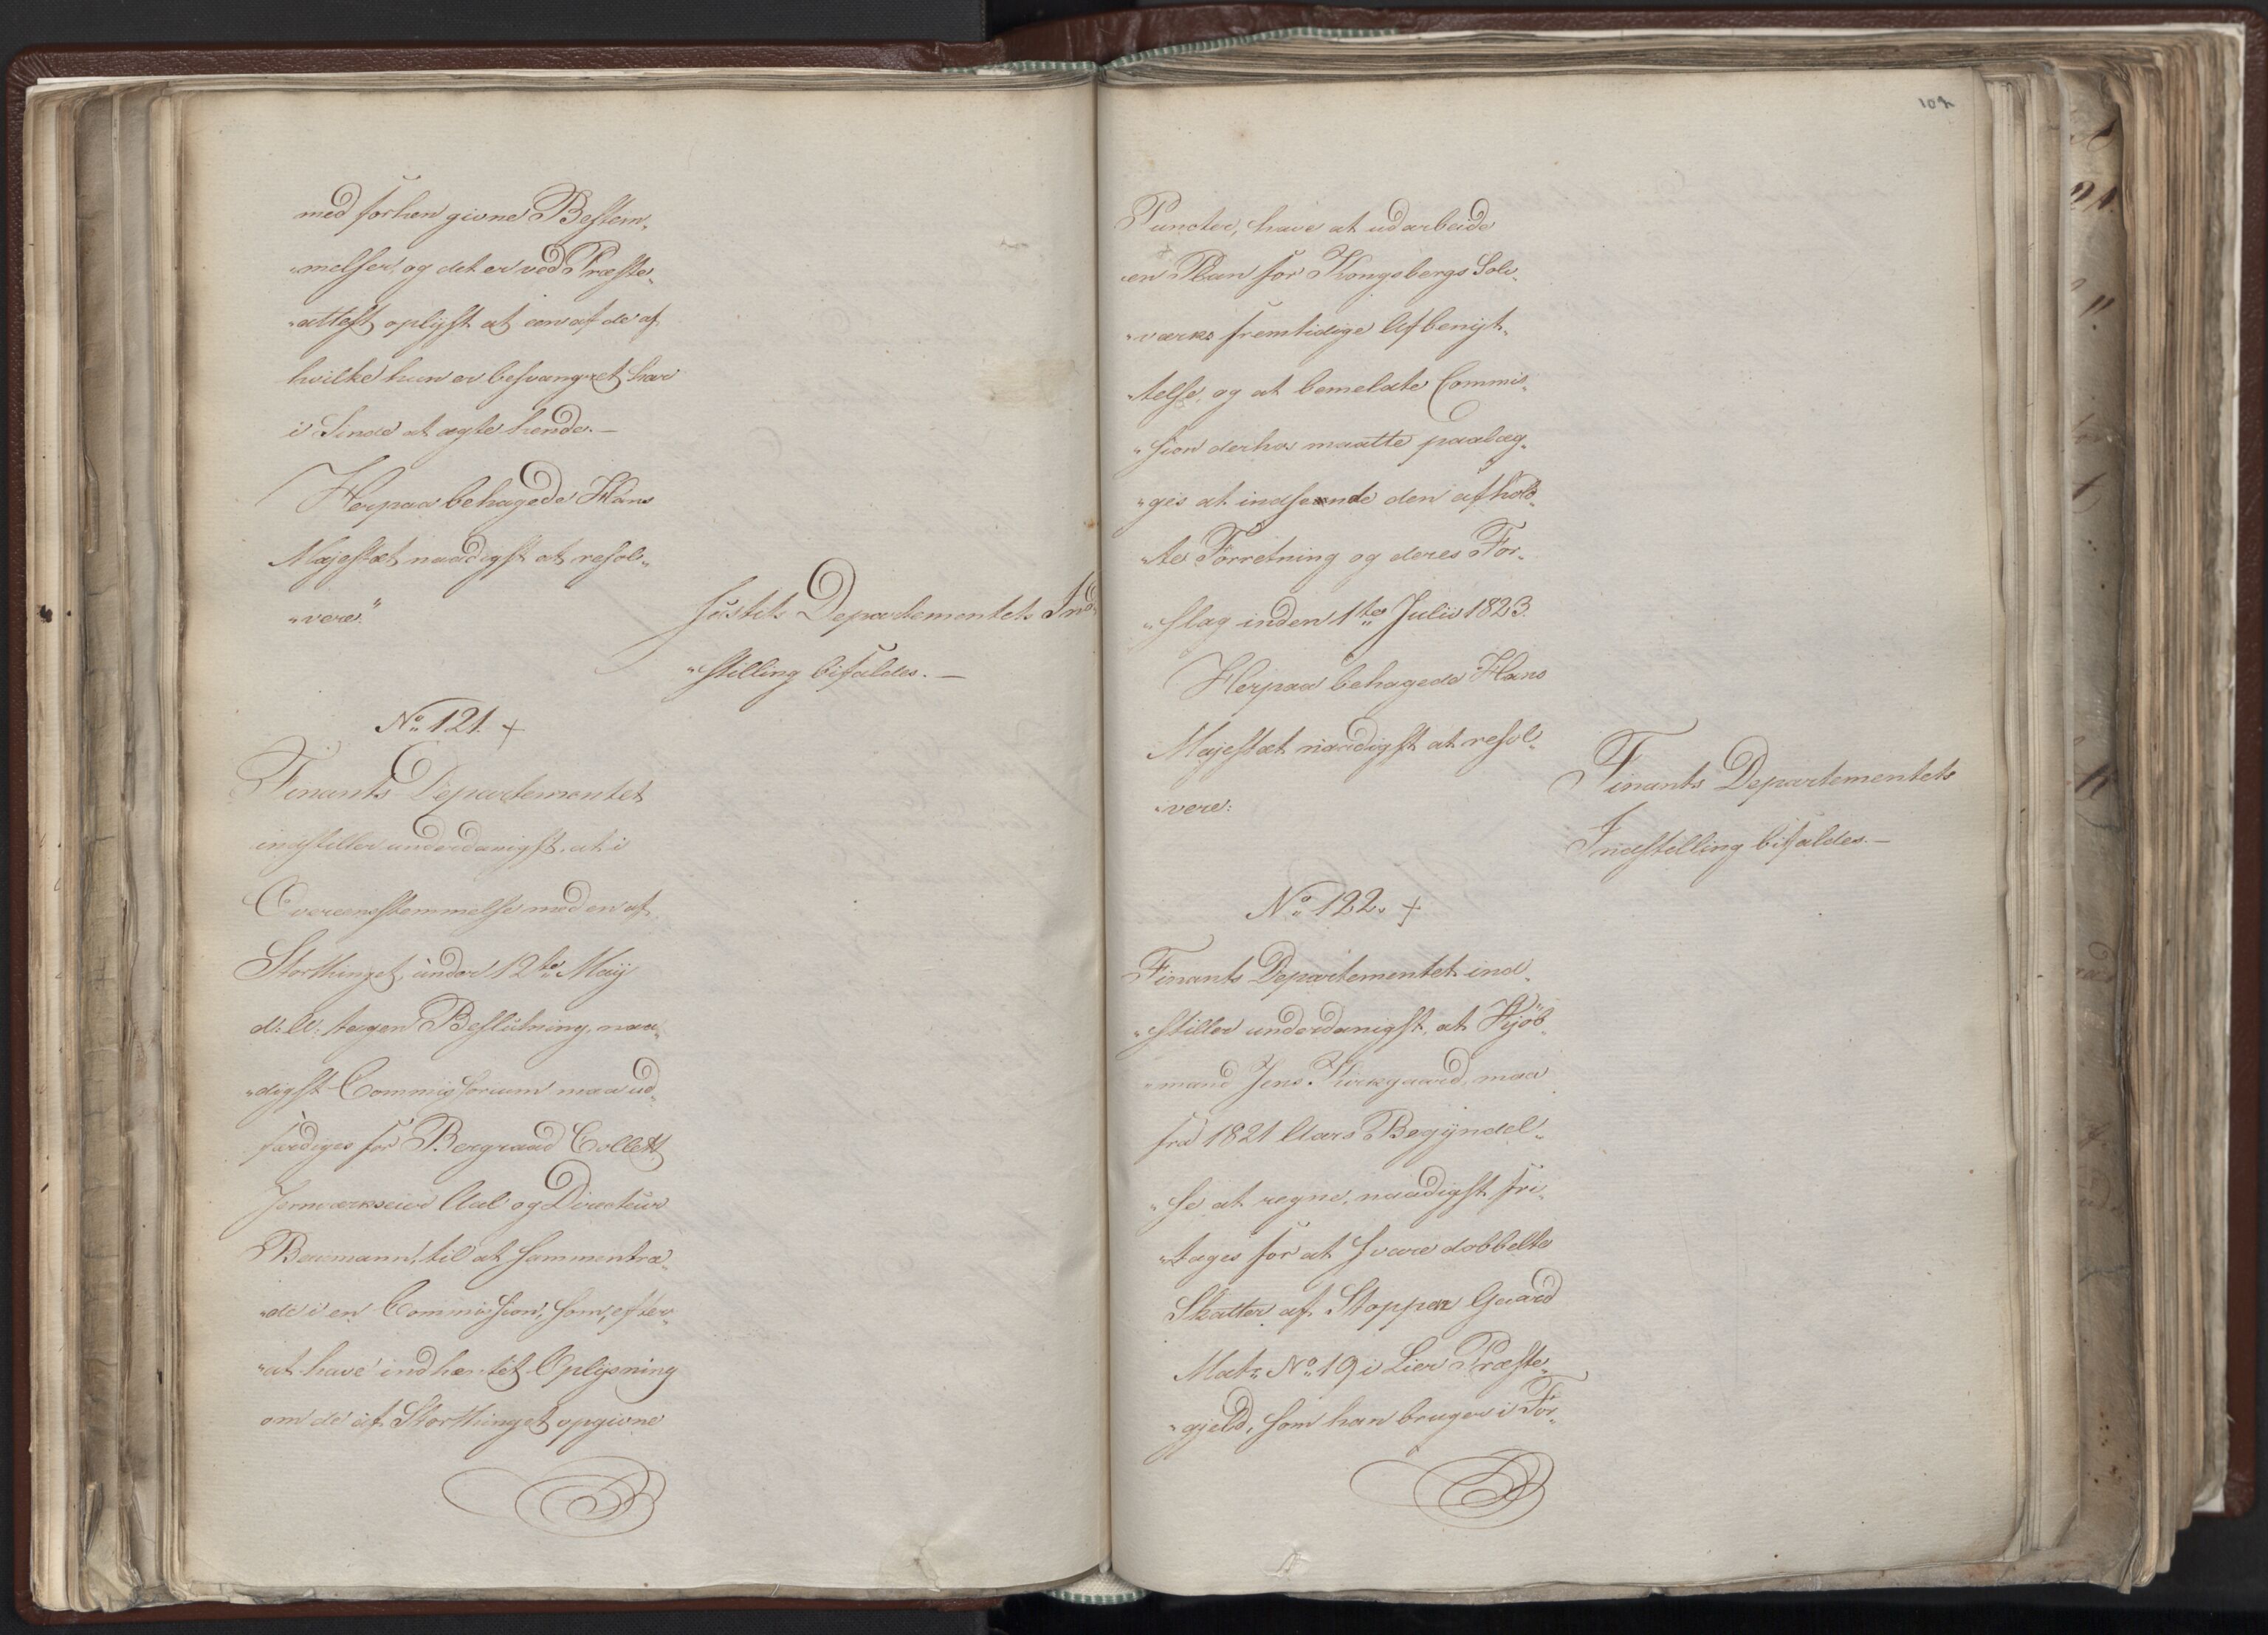 med forhen givne Bestem„
„melser, og det er ved Præste„
„attest oplyst at een af de af
hvilke hun er besvangret har
i Sinde at ægte hende.—
Herpaa behagede Hans
Majestæt naadigst at resol„
„vere:"
Justits Departementets Ind„
„stilling bifaldes.—
No 121. +
Finants Departementet
indstiller underdanigst, at i
Overeensstemmelse med en af
Storthinget under 12te Maij
d: A: tagen Beslutning, naa„
„digst Commissorium maa ud„
færdiges for Bergraad Collett
Jernværkseier Aal og Directeur
Baumann, til at sammentræ„
„de i en Commission, som, efter„
„at have indhentet Oplysning
om de af Storthinget opgivne
104
Puncter, have at udarbeide
en Plan for Kongsbergs Sølv„
„værks fremtidige Afbenyt„
„telse, og at bemeldte Commis„
„sion derhos maatte paalæg„
„ges at indsende den afhold„
„te Forretning og deres For„
„slag inden 1te Julii 1823.
Herpaa behagede Hans
Majestæt naadigst at resol„
„vere:
Finants Departementets
Indstilling bifaldes.—
No 122. +
Finants Departementet ind„
„stiller underdanigst, at Kjöb„
„mand Jens Kirkgaard, maa
fra 1821 Aars Begyndel„
„se at regne, naadigst fri„
„tages for at svare dobbelte
Skatter af Stoppen Gaard
Matr: No 19 i Lier Præste„
„gjeld, som han bruger i For„